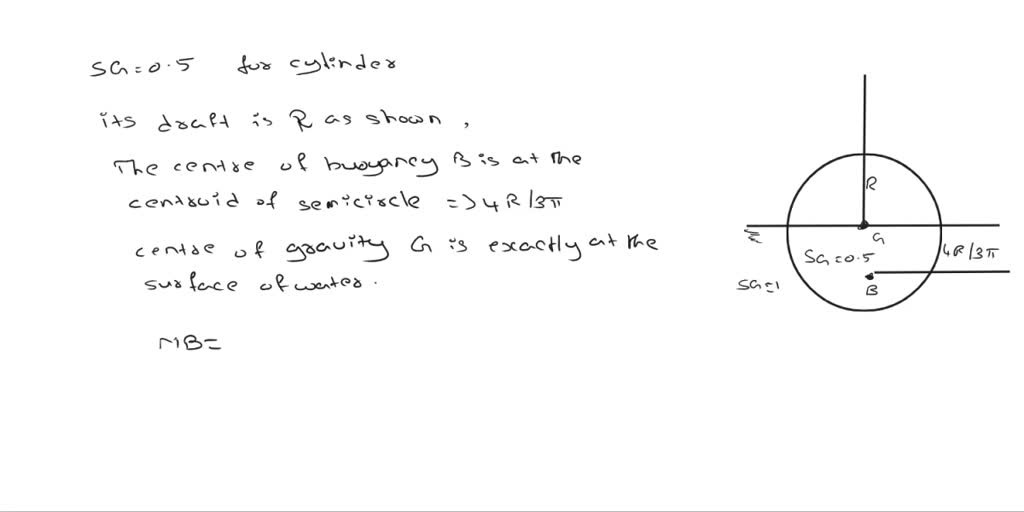 SG = 0.5 for cylinder
its draft is R as shown,
The centre of buoyancy B is at the
centroid of semicircle => 4R/3π
centre of gravity G is exactly at the
surface of water.
MB =
R
G
SG = 0.5
4R/3π
SG = 1
B